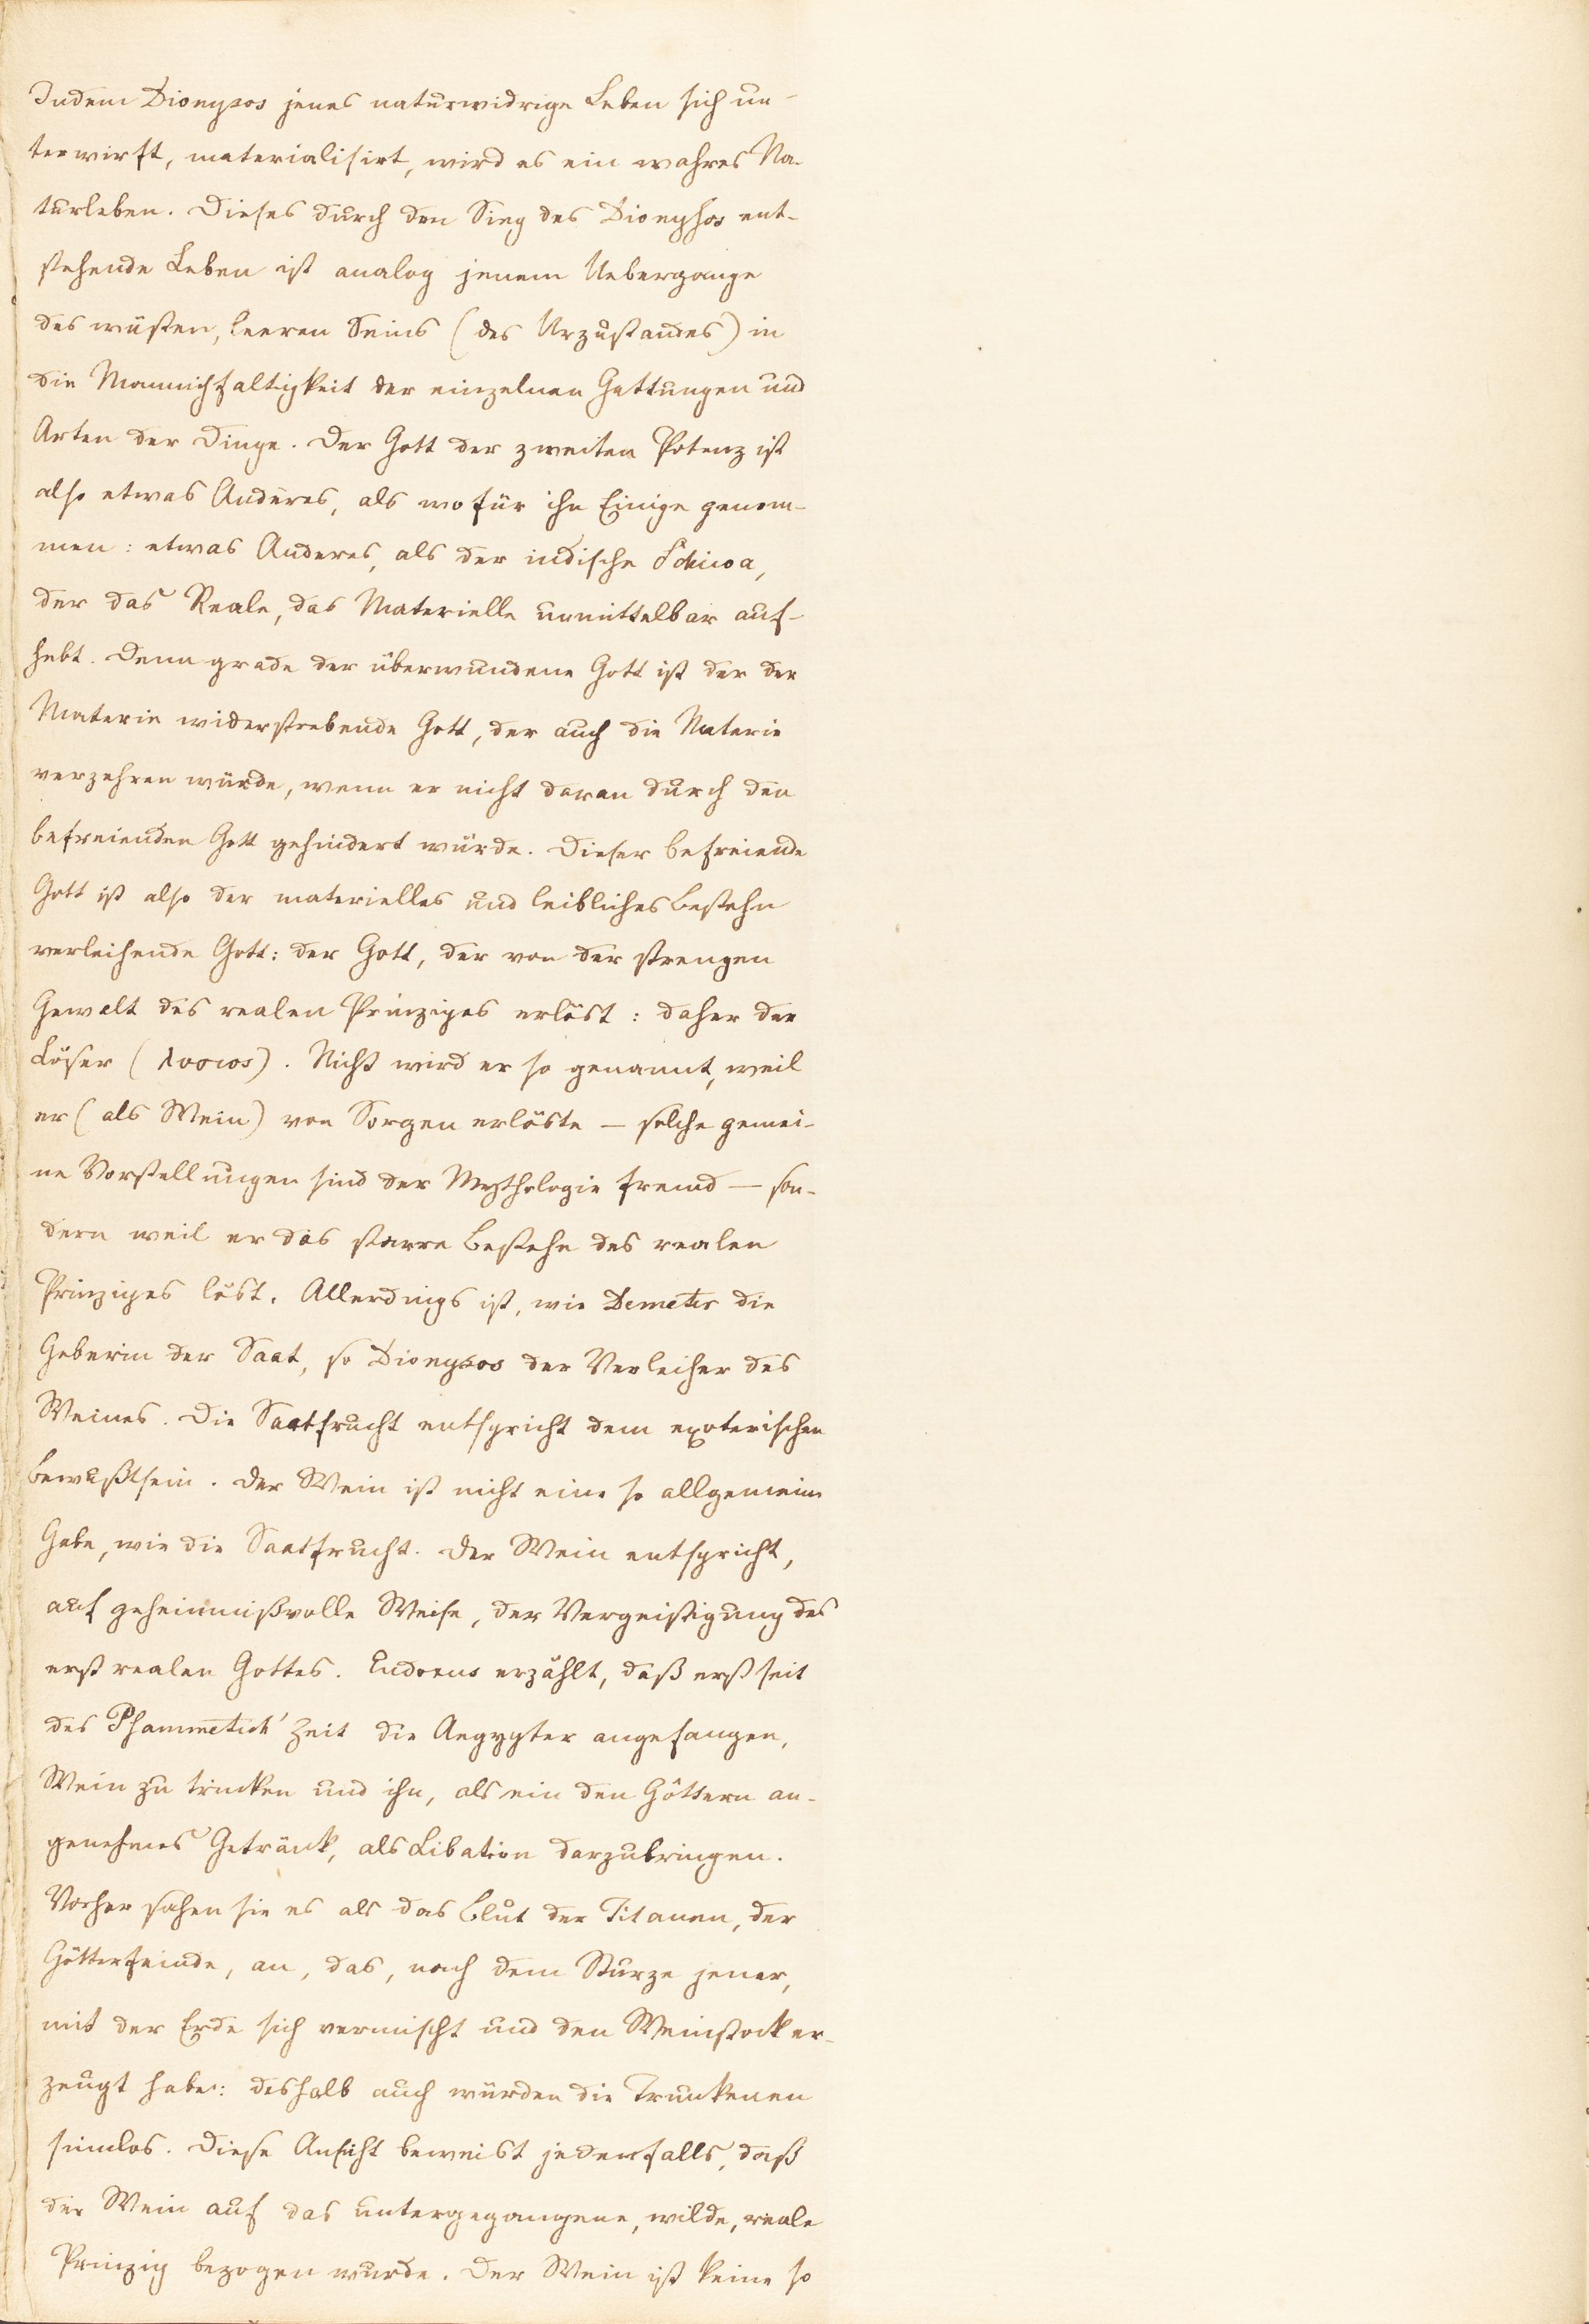 Indem Dionysos jenes naturwidrige Leben sich un-
terwirft, materialisirt, wird es ein wahres Na-
turleben. Dieses durch den Sieg des Dionysos ent-
stehende Leben ist analog jenem Uebergange
des wüsten, leeren Seins (des Urzustandes) in
die Mannichfaltigkeit der einzelnen Gattungen und
Arten der Dinge. Der Gott der zweiten Potenz ist
also etwas Anderes, als wofür ihn Einige genom-
men: etwas Anderes, als der indische Schiwa,
der das Reale, das Materielle unmittelbar auf-
hebt. Denn grade der überwundene Gott ist der der
Materie widerstrebende Gott, der auch die Materie
verzehren würde, wenn er nicht daran durch den
befreienden Gott gehindert würde. Dieser befreiende
Gott ist also der materielles und leibliches Bestehn
verleihende Gott: der Gott, der von der strengen
Gewalt des realen Prinzipes erlöst: daher der
Löser (λυσιος). Nicht wird er so genannt, weil
er (als Wein) von Sorgen erlöste — solche gemei-
ne Vorstellungen sind der Mythologie fremd — son-
dern weil er das starre Bestehn des realen
Prinzipes löst. Allerdings ist, wie Demeter die
Geberin der Saat, so Dionysos der Verleiher des
Weines. Die Saatfrucht entspricht dem exoterischen
Bewußtsein. Der Wein ist nicht eine so allgemeine
Gabe, wie die Saatfrucht. Der Wein entspricht,
auf geheimnißvolle Weise, der Vergeistigung des
erst realen Gottes. Eudoxus erzählt, daß erst seit
des Psammetich' Zeit die Aegypter angefangen,
Wein zu trinken und ihn, als ein den Göttern an-
genehmes Getränk, als Libation darzubringen.
Vorher sahen sie es als das Blut der Titanen, der
Götterfeinde, an, das, nach dem Sturze jener,
mit der Erde sich vermischt und den Weinstock er-
zeugt habe: deshalb auch würden die Trunkenen
sinnlos. Diese Ansicht beweist jedenfalls, daß
der Wein auf das untergegangene, wilde, reale
Prinzip bezogen wurde. Der Wein ist keine so